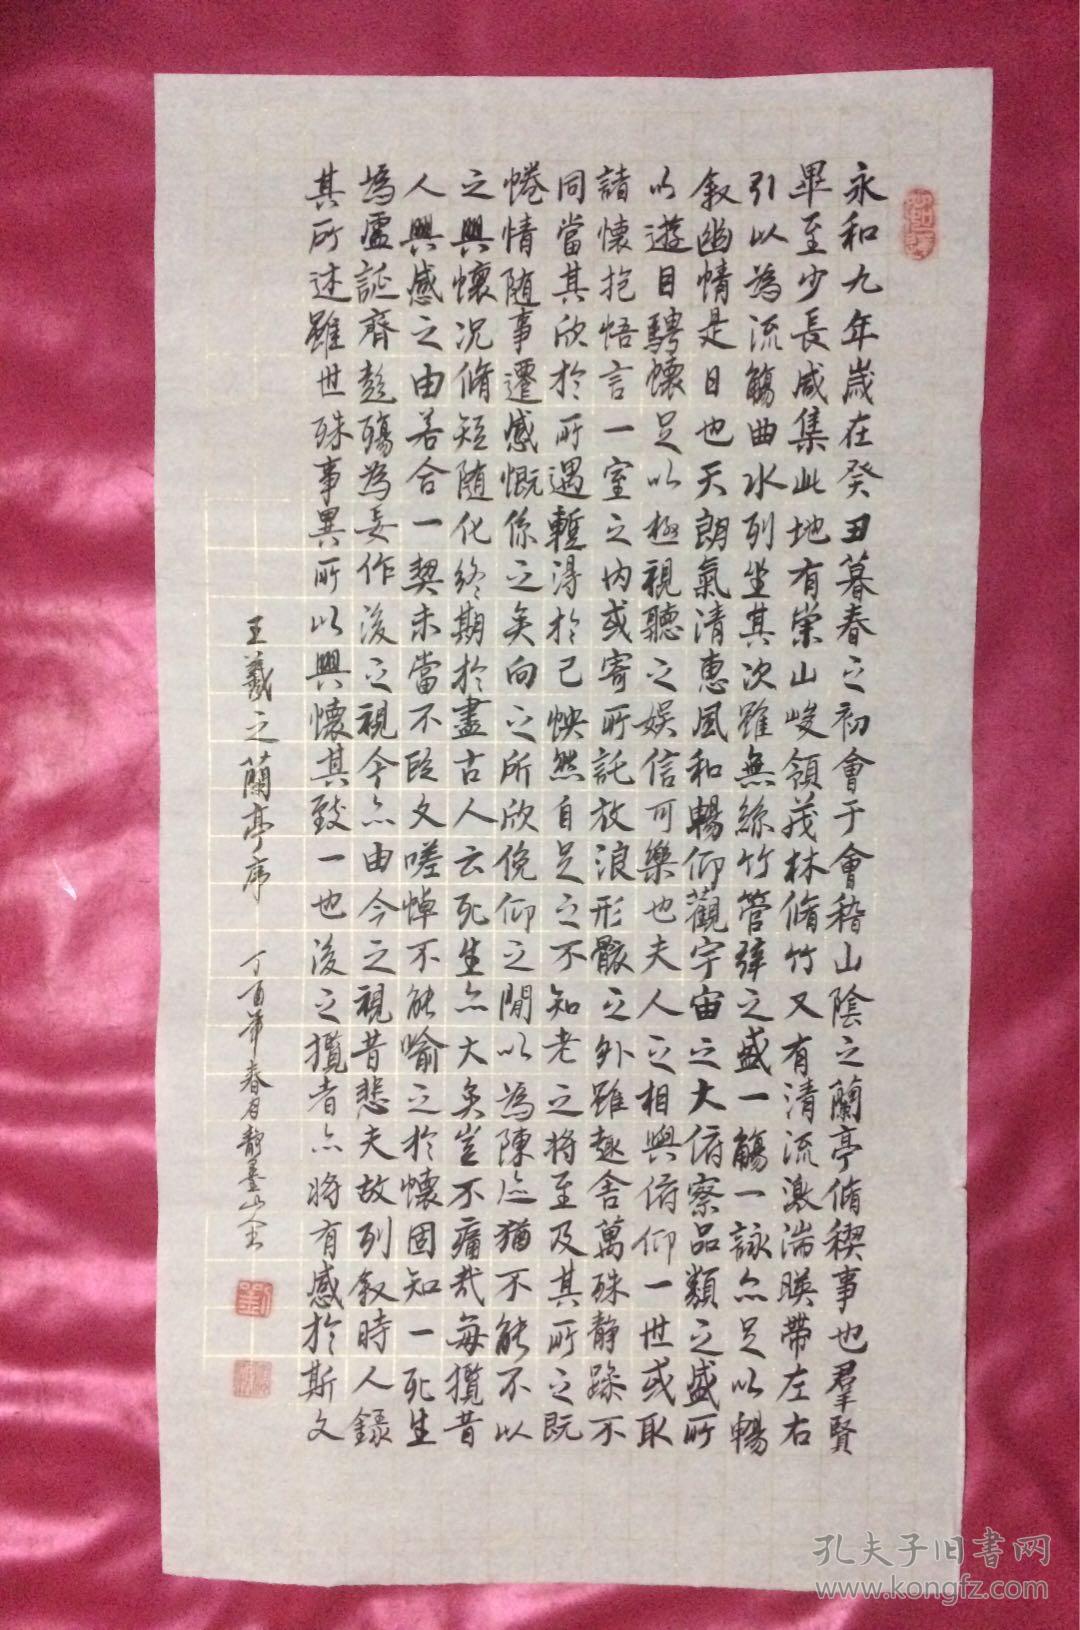 永和九年歲在癸丑暮春之初會于會稽山陰之蘭亭脩稧事也羣賢
畢至少長咸集此地有崇山峻領茂林脩竹又有清流激湍暎帶左右
引以為流觴曲水列坐其次雖無絲竹管弦之盛一觴一詠亦足以暢
叙幽情是日也天朗氣清惠風和暢仰觀宇宙之大俯察品類之盛所
以遊目騁懷足以極視聽之娱信可樂也夫人之相與俯仰一世或取
諸懷抱悟言一室之内或寄所託放浪形骸之外雖趣舍萬殊静躁不
同當其欣於所遇暫得於己怏然自足之不知老之将至及其所之既
惓情随事遷感慨係之矣向之所欣俛仰之閒以為陳迹猶不能不以
之興懷况脩短随化終期於盡古人云死生亦大矣豈不痛哉每攬昔
人興感之由若合一契未當不臨文嗟悼不能喻之於懷固知一死生
為虛誕齊彭殤為妄作後之視今亦由今之視昔悲夫故列叙時人錄
其所述雖世殊事異所以興懷其致一也後之攬者亦将有感於斯文
王羲之蘭亭序 丁酉年春月静墨山人書
孔夫子旧书网
www.kongfz.com